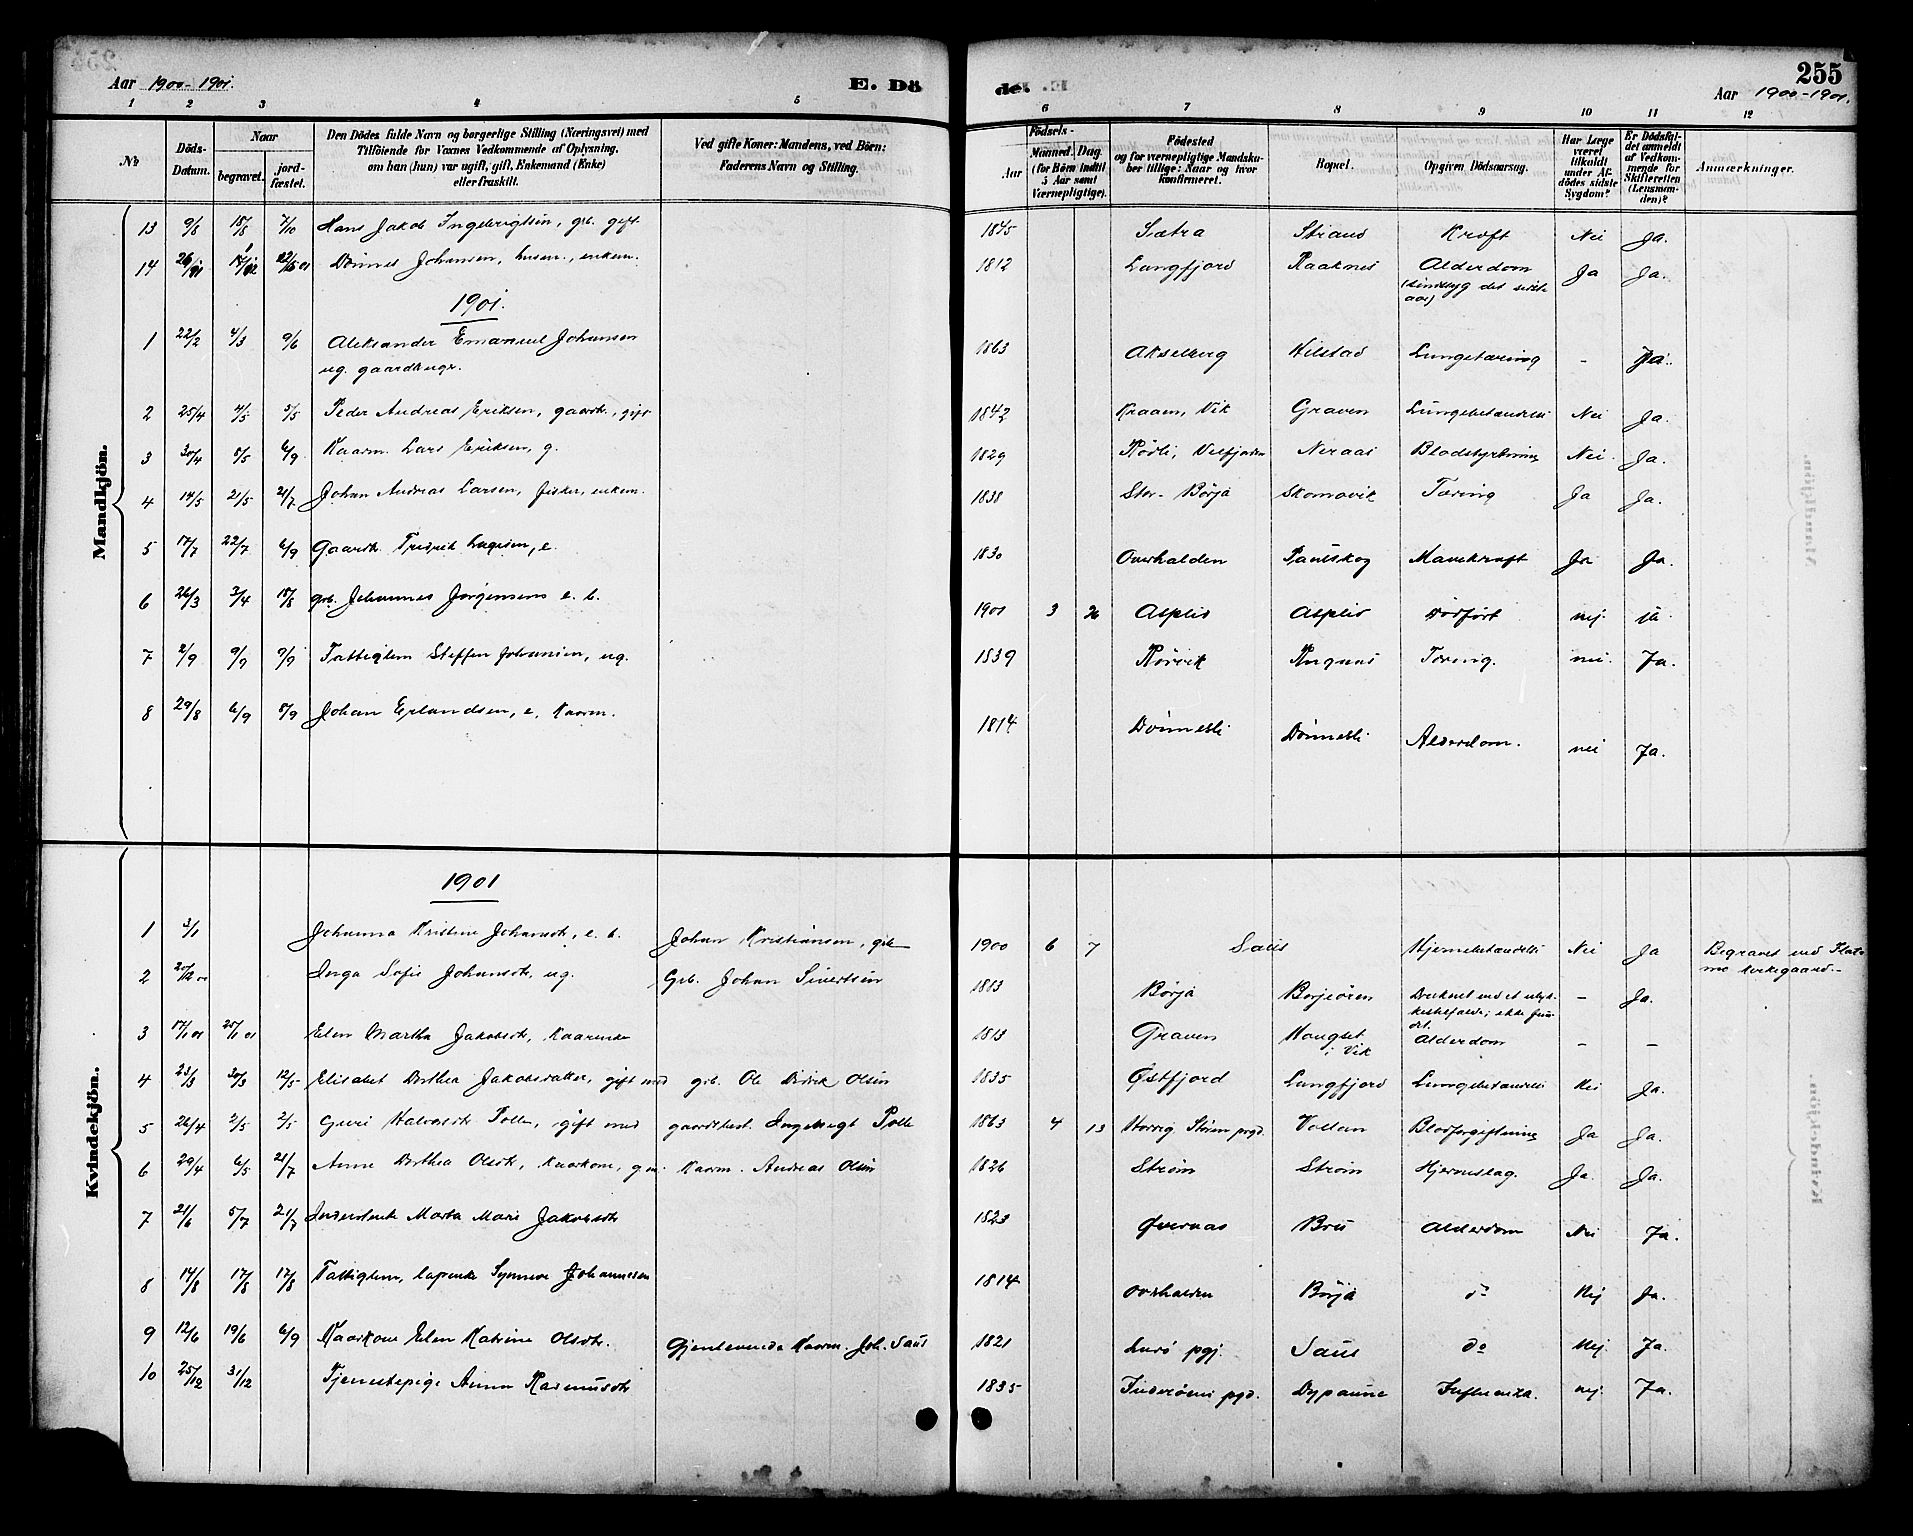 Aar 1900-1901.
E. Döde.
255
Aar 1900-1901.
1 2 3 4 5 6 7 8 9 10 11 12
No
Döds-Datum.
Naar
begravet.
jordfæstet.
Den Dödes fulde Navn og borgerlige Stilling (Næringsvei) med
Tilföiende for Voxnes Vedkommende af Oplysning,
om han (hun) var ugift, gift, Enkemand (Enke)
eller fraskilt.
Ved gifte Koner: Mandens, ved Börn:
Faderens Navn og Stilling.
Födsels-
Aar
Maaned. Dag
(for Börn indtil
5 Aar samt
Værnepligtige).
Födested
og for værnepligtige Mandskaber tillige: Naar og hvor
konfirmeret.
Bopæl.
Opgiven Dödsaarsag.
Har Læge
været
tilkaldt
under Afdödes sidste
Sygdom?
Er Dödsfaldet anmeldt
af Vedkommende for
Skifteretten
(Lensmanden)?
Anmærkninger.
Mandkjön.
13 9/8 18/8 7/10 Hans Jakob Ingebrigtsen, grb. gift 1845 Sætra Strand Kræft Nei Ja.
14 Dønnes Johansen, husm., enkem. 1812 Langfjord Raaknes Alderdom (sindssyg det sidste aar) Ja Ja.
1901.
1 22/2 4/3 9/6 Aleksander Emanuel Johansen 1863 Akselberg Hilstad Lungetæring - Ja.
ug. gaardbrugr.
2 25/4 4/5 5/5 Peder Andreas Eriksen, gaardb., gift 1842 Kraaen, Vik Graven Lungebetændelse Nei Ja.
3 30/4 8/5 6/9 Kaarm. Lars Eriksen, g. 1829 Rødli, Velfjorden Neraas Blodstyrtning Nei. Ja.
4 14/5 21/5 21/7 Johan Andreas Larsen, fisker, enkem. 1838 Stor-Børja Skomovik Tæring Ja Ja.
5 17/7 22/7 6/9 Gaardb. Fredrik Lagesen, e. 1830 Overhalden Paulskog Mavekræft Ja Ja.
6 26/3 3/4 18/8 grb. Johannes Jørgensens e. b. 1901 3 26 Asplid Asplid Dødfødt nej.
7 2/9 9/9 9/9 Fattiglem Steffen Johansen, ug. 1839 Rørvik Tæring. nei. Ja.
8 29/8 6/9 8/9 Johan Erlandsen, e. Kaarm. 1814 Dønnesli Dønnesli Alderdom. nei Ja.
Kvindekjön.
1901
1 3/1 Johanna Kristine Johansdt., e. b. Johan Kristiansen, grb 1900 6 7 Saus Hjernebetændelse Nei Ja Begravet ved
kirkegaard.
2 20/12 00 Inga Sofie Johansdt., ug. Grb. Johan Sivertsen 1813 Børja Borjeøren Druknet ved et ulykkestilfælde; ikke fundet. - Ja.
3 17/1 01 25/1 01 Elen Martha Jakobsdt., Kaarenke 1813 Graven Haugset i Vik Alderdom - -
4 23/3 30/3 12/5 Elisabet Dorthea Jakobsdatter, gift med grb. Ole Didrik Olsen 1835 Østfjord Langfjord Lungebetændelse Nei Ja.
5 26/4 2/5 2/5 Guri Halvorsdt. Polle, gift med gaardbest. Ingebregt Polle 1863 4 13 Horrig Støren prgd. Vollan Blodforgiftning Ja Ja.
6 29/4 6/5 21/7 Anne Dorthea Olsdt., Kaarkone, g. m. Kaarm. Andreas Olsen 1826 Strøm Strøm Hjerneslag. Ja. Ja.
7 21/6 5/7 21/7 Inderstenke Marta Marie Jakobsdt. 1823 Øvernas Bru Alderdom Nei Ja.
8 14/8 17/8 17/8 Fattiglem, lapenke Synneve Johannesen 1814 Overhalden Børja do Nej Ja.
9 12/6 19/6 6/9 Kaarkone Elen Katrine Olsdtr. Gjenlevende Kaarm. Joh. Saus 1821 Lurø pgj. Saus do Nej. Ja.
10 25/12 31/12 Tjenestepige Anna Rasmusdtr 1835 Inderøens pgd. Dypaune Influenza. nej. Ja.